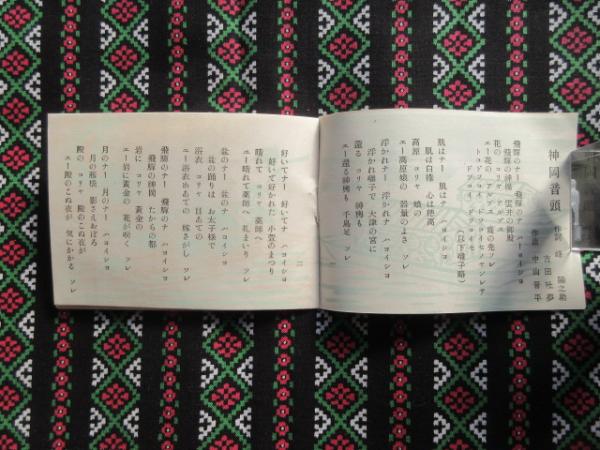 神岡音頭
作詞 峰 陽之助
吉田社夢
作曲 中山晋平
飛騨のナー 飛騨のナ ハコイシヨ
飛騨の神岡 雲井の御殿
花の コリャ
エー花の
ドッコイ ドッコイセ
(以下囃子略)
肌はナー 肌はナ ハコイシヨ
肌は白樺 心は穂高
高原 コリャ 娘の
エー高原娘の 器量のよさ ソレ
浮かれナー 浮かれナ ハコイシヨ
浮かれ囃子で 大津の宮に
還る コリャ 神輿も
エー還る神輿も 千鳥足 ソレ
好いてナー 好いてナ ハコイシヨ
好いて好かれた 小萱のまつり
晴れて コリャ 薬師へ
エー晴れて薬師へ 礼まいり ソレ
盆のナー 盆のナ ハコイシヨ
盆の踊りは お太子様で
浴衣 コリャ 目あての
エー浴衣目あての 嫁さがし ソレ
飛騨のナー 飛騨のナ ハコイシヨ
飛騨の神岡 たからの都
岩に コリャ 黄金の
エー岩に黄金の 花が咲く ソレ
月のナー 月のナー ハコイシヨ
月の藤橋 影さえおぼろ
殿の コリャ 殿のこぬ夜が
エー殿のこぬ夜が 気にかかる ソレ